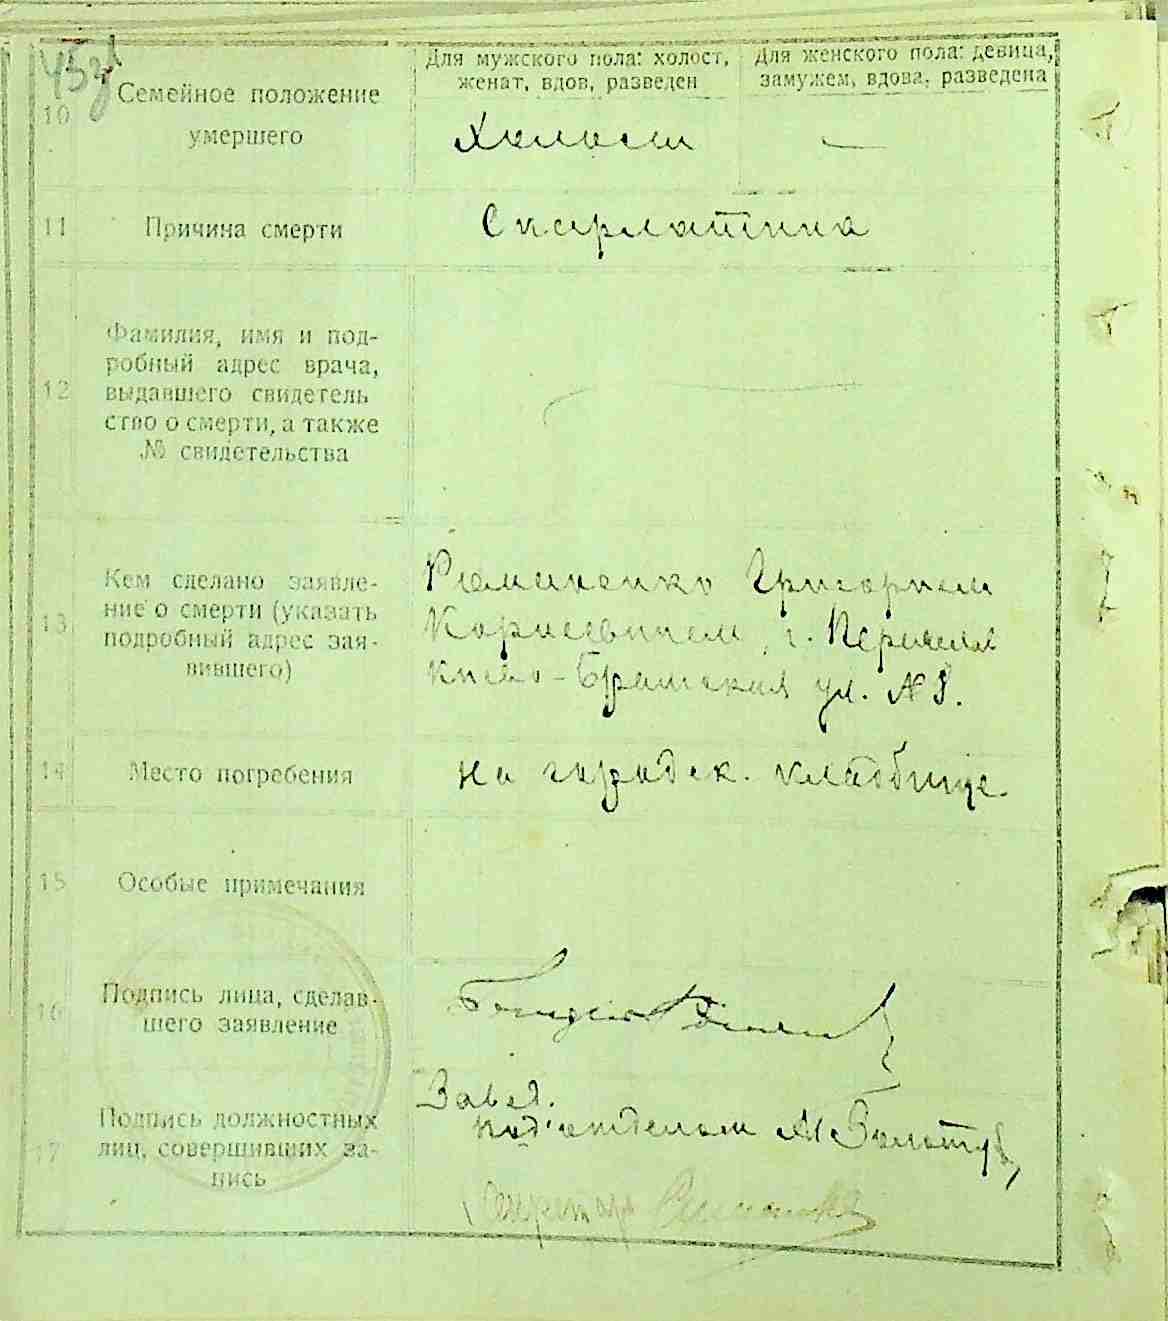 Для мужского пола: холост,
женат, вдов, разведен
Для женского пола: девица,
замужем, вдова, разведена
10
Семейное положение
умершего
Холост
—
11
Причина смерти
Скарлатина
12
Фамилия, имя и под-
робный адрес врача,
выдавшего свидетель
ство о смерти, а также
№ свидетельства
13
Кем сделано заявле-
ние о смерти (указать
подробный адрес зая-
вившего)
Романенко Григорием
г.
Киево-Братская ул. № 8.
14
Место погребения
на городск. кладбище.
15
Особые примечания
16
Подпись лица, сделав-
шего заявление
17
Подпись должностных
лиц, совершивших за-
пись
Завед.
под'отделом
Секретарь